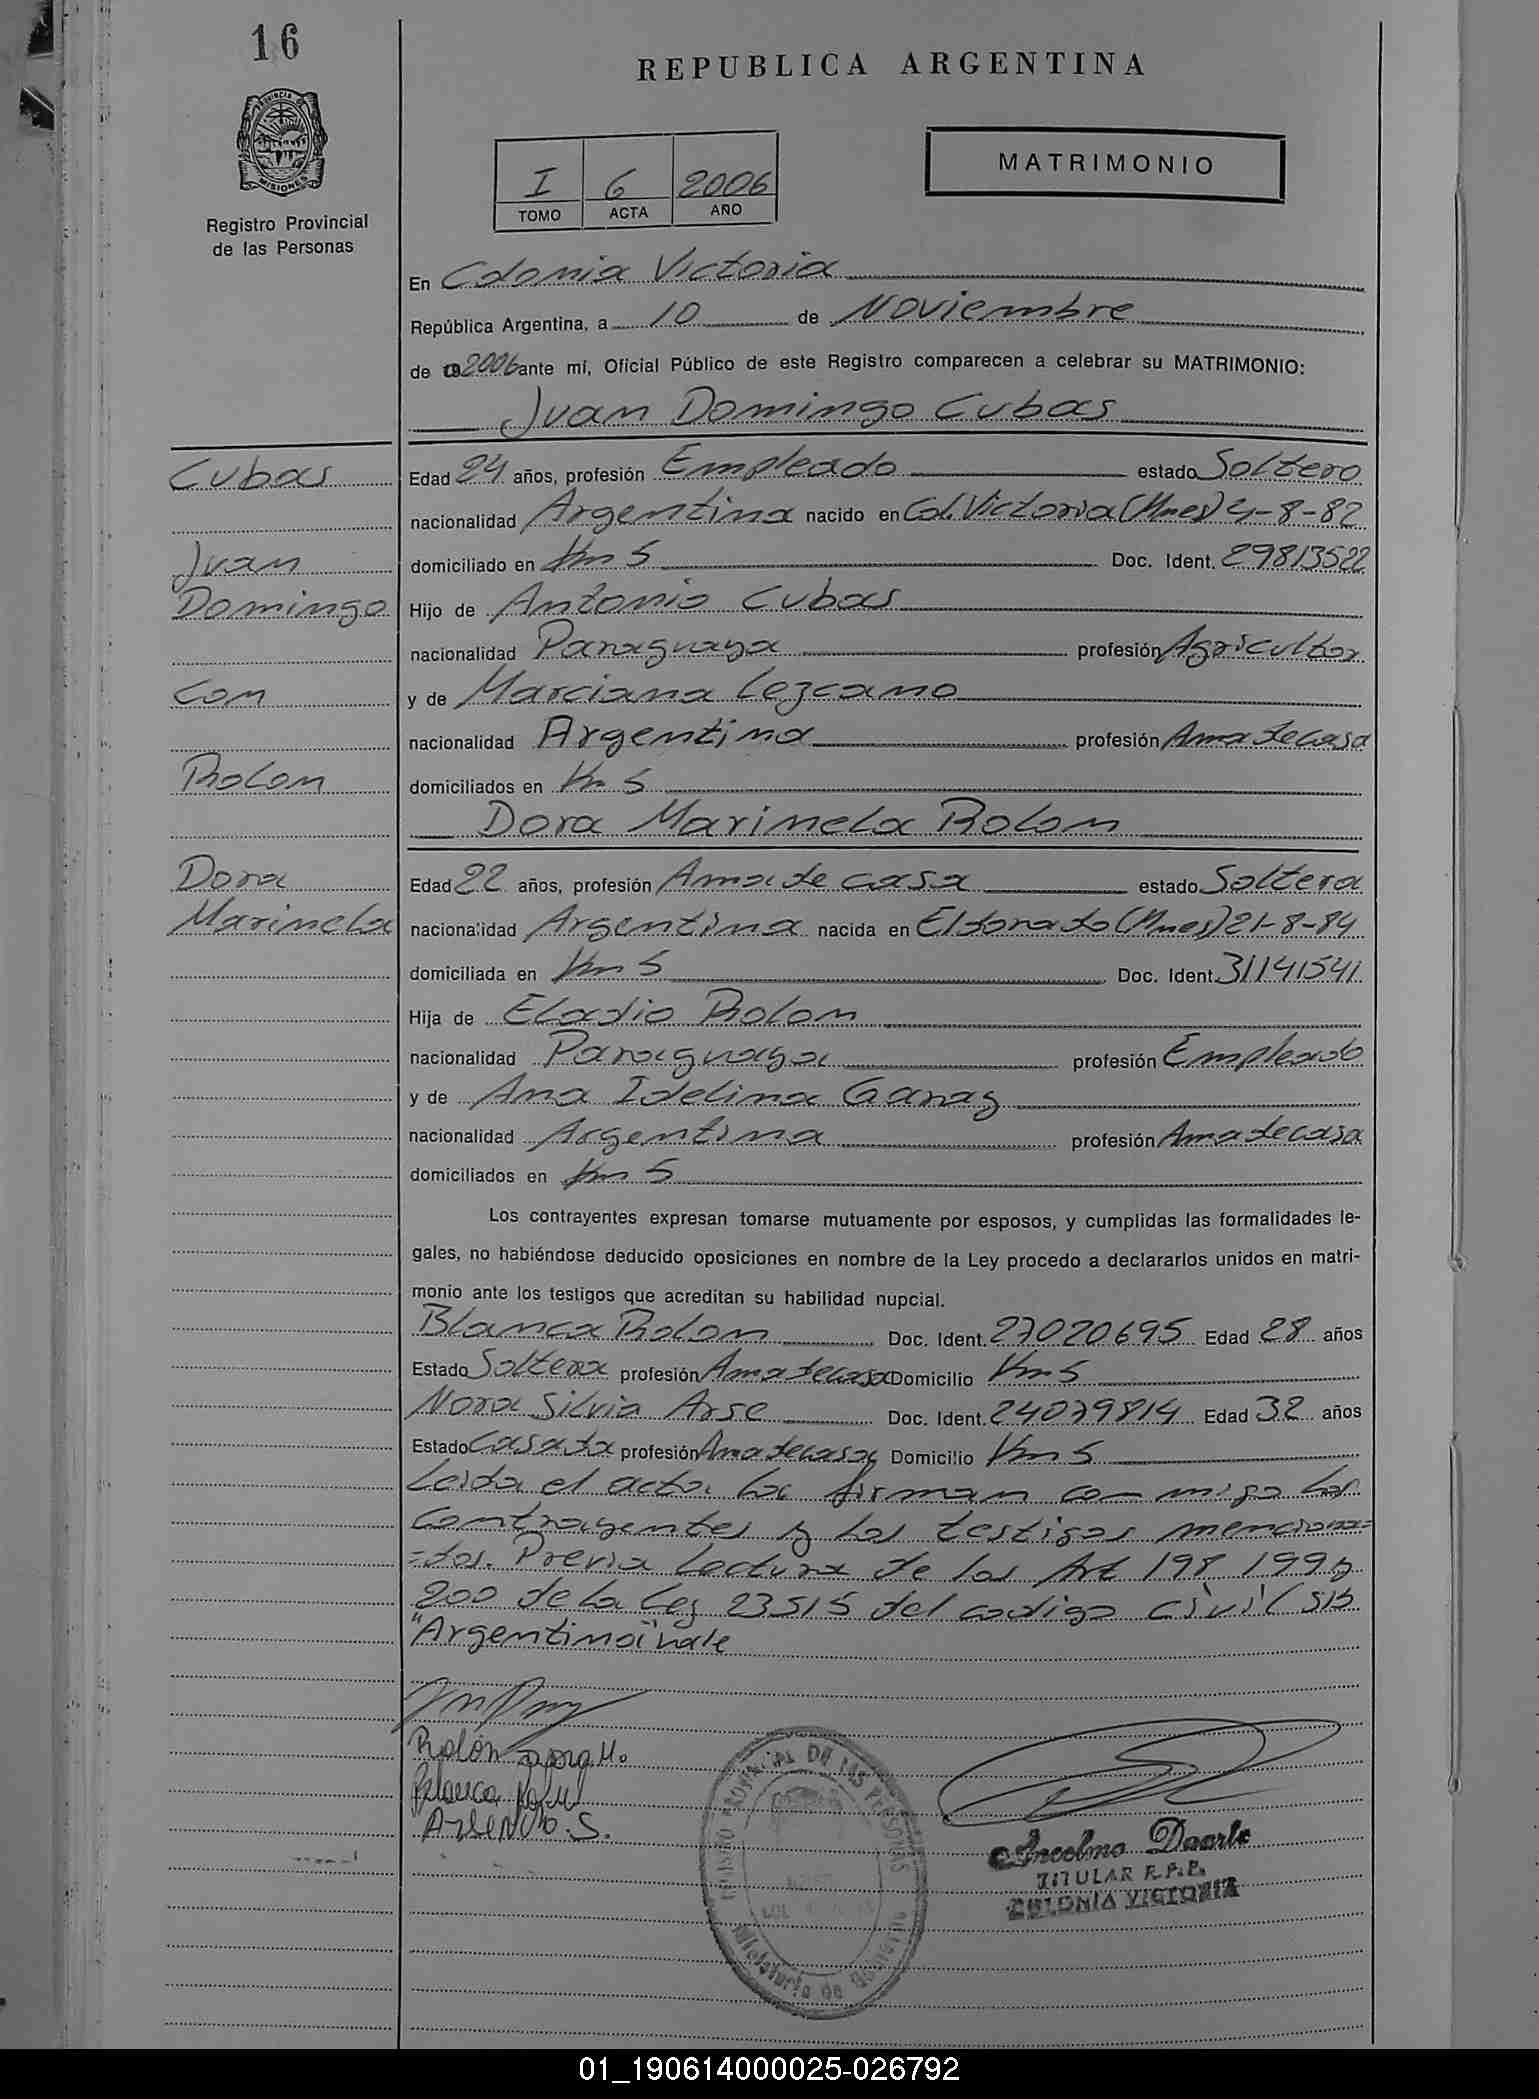 16
REPUBLICA ARGENTINA
PROVINCIA DE
MISIONES
Registro Provincial
de las Personas
I 6 2006
TOMO ACTA AÑO
MATRIMONIO
En Colonia Victoria
República Argentina, a 10 de Noviembre
de 2006 ante mí, Oficial Público de este Registro comparecen a celebrar su MATRIMONIO:
Juan Domingo Cubas
Cubas
Juan
Domingo
Con
Rolon
Dora
Marinela
Edad 24 años, profesión Empleado estado Soltero
nacionalidad Argentina nacido en Col. Victoria (Mnes) 4-8-82
domiciliado en Km 5 Doc. Ident. 29813522
Hijo de Antonio Cubas
nacionalidad Paraguaya profesión Agricultor
y de Marciana Lezcano
nacionalidad Argentina profesión Ama de casa
domiciliados en Km 5
Dora Marinela Rolon
Edad 22 años, profesión Ama de casa estado Soltera
nacionalidad Argentina nacida en Eldorado (Mnes) 21-8-84
domiciliada en Km 5 Doc. Ident. 31141541
Hija de Eladio Rolon
nacionalidad Paraguaya profesión Empleado
y de Ana Idelina Garay
nacionalidad Argentina profesión Ama de casa
domiciliados en Km 5
Los contrayentes expresan tomarse mutuamente por esposos, y cumplidas las formalidades le-
gales, no habiéndose deducido oposiciones en nombre de la Ley procedo a declararlos unidos en matri-
monio ante los testigos que acreditan su habilidad nupcial.
Blanca Rolon Doc. Ident. 27020695 Edad 28 años
Estado Soltera profesión Ama de casa Domicilio Km 5
Nora Silvia Arse Doc. Ident. 24079814 Edad 32 años
Estado Casada profesión Ama de casa Domicilio Km 5
Leida el acta la firman con migo los
contrayentes y los testigos menciona=
=dos. Previa lectura de los Art 198 199 y
200 de la Ley 23515 del codigo civil S/b
"Argentina" vale
Rolón Dora M.
Blanca Rolon
Arse Nora S.
REGISTRO PROVINCIAL DE LAS PERSONAS
Ministerio de Gobierno
Ancelmo Duarte
TITULAR R.P.P.
COLONIA VICTORIA
01_190614000025-026792